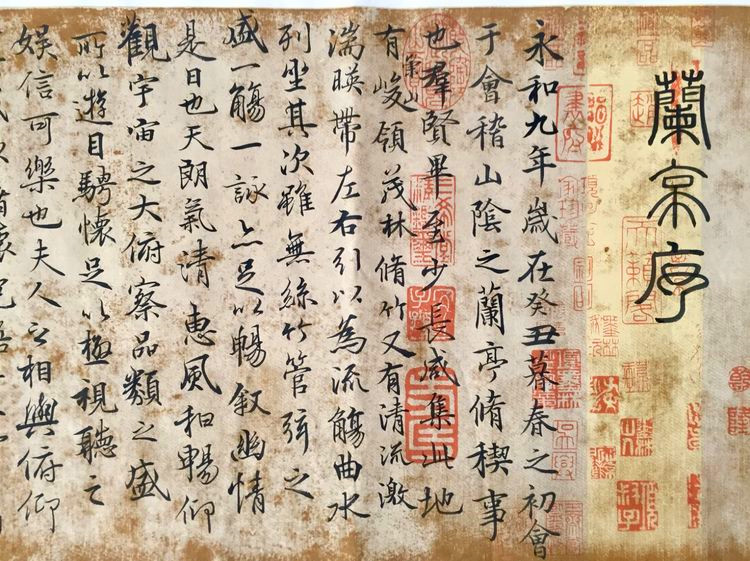 蘭亭序
永和九年歲在癸丑暮春之初會
于會稽山陰之蘭亭脩稧事
也羣賢畢至少長咸集此地
有崇山峻領茂林脩竹又有清流激
湍暎帶左右引以為流觴曲水
列坐其次雖無絲竹管弦之
盛一觴一詠亦足以暢敘幽情
是日也天朗氣清惠風和暢仰
觀宇宙之大俯察品類之盛
所以遊目騁懷足以極視聽之
娛信可樂也夫人之相與俯仰